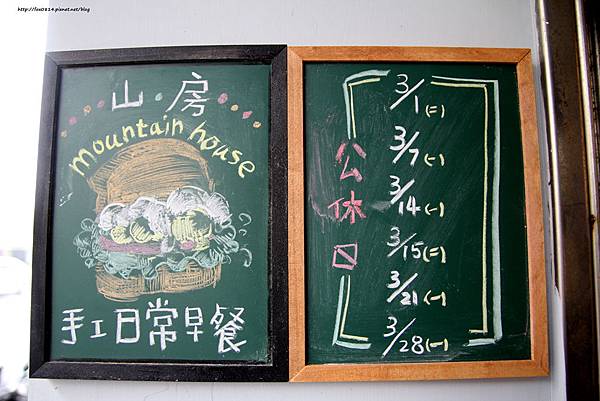 http://fou0814.pixnet.net/blog
山房
mountain house
手工日常早餐
公休日
3/1(二)
3/7(一)
3/14(一)
3/15(二)
3/21(一)
3/28(一)